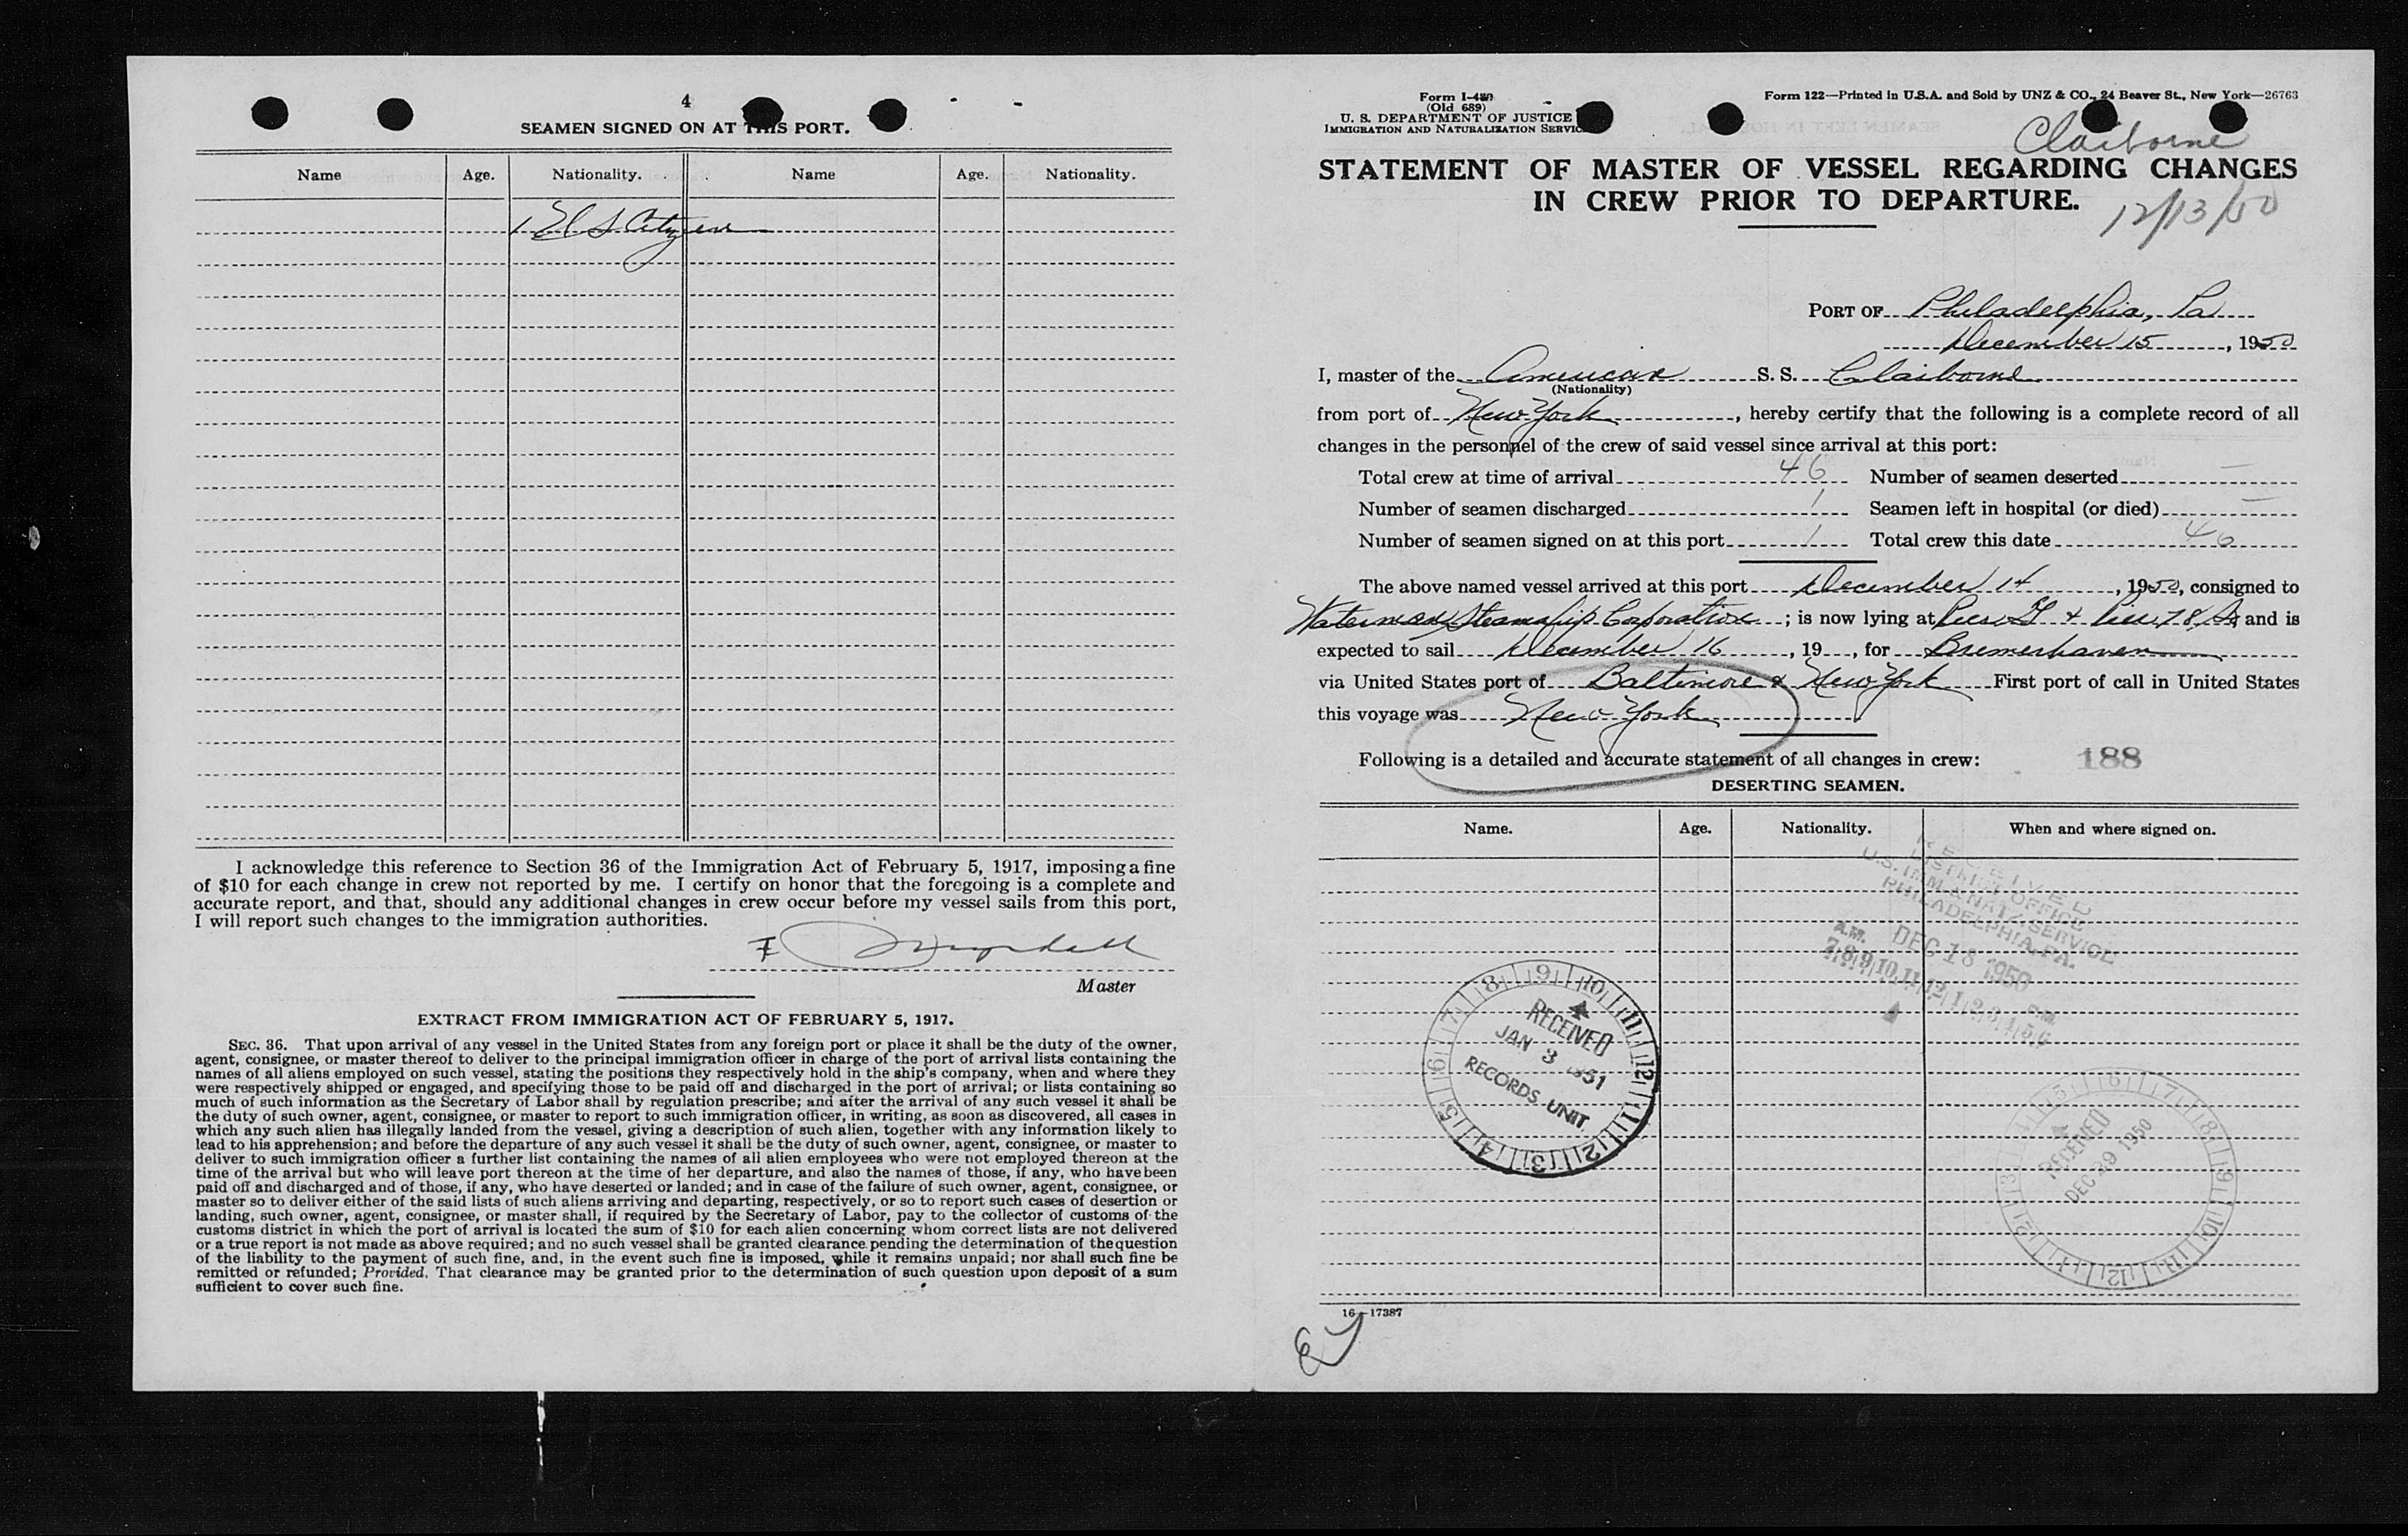 4
SEAMEN SIGNED ON AT THIS PORT.
Name Age. Nationality. Name Age. Nationality.
1 U S Citizen
I acknowledge this reference to Section 36 of the Immigration Act of February 5, 1917, imposing a fine
of $10 for each change in crew not reported by me. I certify on honor that the foregoing is a complete and
accurate report, and that, should any additional changes in crew occur before my vessel sails from this port,
I will report such changes to the immigration authorities.
Master
EXTRACT FROM IMMIGRATION ACT OF FEBRUARY 5, 1917.
SEC. 36. That upon arrival of any vessel in the United States from any foreign port or place it shall be the duty of the owner,
agent, consignee, or master thereof to deliver to the principal immigration officer in charge of the port of arrival lists containing the
names of all aliens employed on such vessel, stating the positions they respectively hold in the ship's company, when and where they
were respectively shipped or engaged, and specifying those to be paid off and discharged in the port of arrival; or lists containing so
much of such information as the Secretary of Labor shall by regulation prescribe; and after the arrival of any such vessel it shall be
the duty of such owner, agent, consignee, or master to report to such immigration officer, in writing, as soon as discovered, all cases in
which any such alien has illegally landed from the vessel, giving a description of such alien, together with any information likely to
lead to his apprehension; and before the departure of any such vessel it shall be the duty of such owner, agent, consignee, or master to
deliver to such immigration officer a further list containing the names of all alien employees who were not employed thereon at the
time of the arrival but who will leave port thereon at the time of her departure, and also the names of those, if any, who have been
paid off and discharged and of those, if any, who have deserted or landed; and in case of the failure of such owner, agent, consignee, or
master so to deliver either of the said lists of such aliens arriving and departing, respectively, or so to report such cases of desertion or
landing, such owner, agent, consignee, or master shall, if required by the Secretary of Labor, pay to the collector of customs of the
customs district in which the port of arrival is located the sum of $10 for each alien concerning whom correct lists are not delivered
or a true report is not made as above required; and no such vessel shall be granted clearance pending the determination of the question
of the liability to the payment of such fine, and, in the event such fine is imposed, while it remains unpaid; nor shall such fine be
remitted or refunded; Provided, That clearance may be granted prior to the determination of such question upon deposit of a sum
sufficient to cover such fine.
Form I-480
(Old 689)
U. S. DEPARTMENT OF JUSTICE
IMMIGRATION AND NATURALIZATION SERVICE
Form 122—Printed in U.S.A. and Sold by UNZ & CO., 24 Beaver St., New York—26763
Claiborne
STATEMENT OF MASTER OF VESSEL REGARDING CHANGES
IN CREW PRIOR TO DEPARTURE.
12/13/50
PORT OF Philadelphia, Pa
December 15, 1950
I, master of the American S. S. Claiborne
(Nationality)
from port of New York, hereby certify that the following is a complete record of all
changes in the personnel of the crew of said vessel since arrival at this port:
Total crew at time of arrival 46 Number of seamen deserted —
Number of seamen discharged 1 Seamen left in hospital (or died) —
Number of seamen signed on at this port 1 Total crew this date 46
The above named vessel arrived at this port December 14, 1950, consigned to
Waterman Steamship Corporation; is now lying at Pier G & Pier 78, and is
expected to sail December 16, 19 , for Bremerhaven
via United States port of Baltimore & New York First port of call in United States
this voyage was New York
Following is a detailed and accurate statement of all changes in crew:
188
DESERTING SEAMEN.
Name. Age. Nationality. When and where signed on.
RECEIVED
DISTRICT OFFICE
U.S. IMM. & NATZ. SERVICE
PHILADELPHIA, PA.
DEC 18 1950
A.M. P.M.
7 8 9 10 11 12 1 2 3 4 5 6
RECEIVED
JAN 3 1951
RECORDS UNIT.
1 2 3 4 5 6 7 8 9 10 11 12
RECEIVED
DEC 19 1950
1 2 3 4 5 6 7 8 9 10 11 12
16—17387